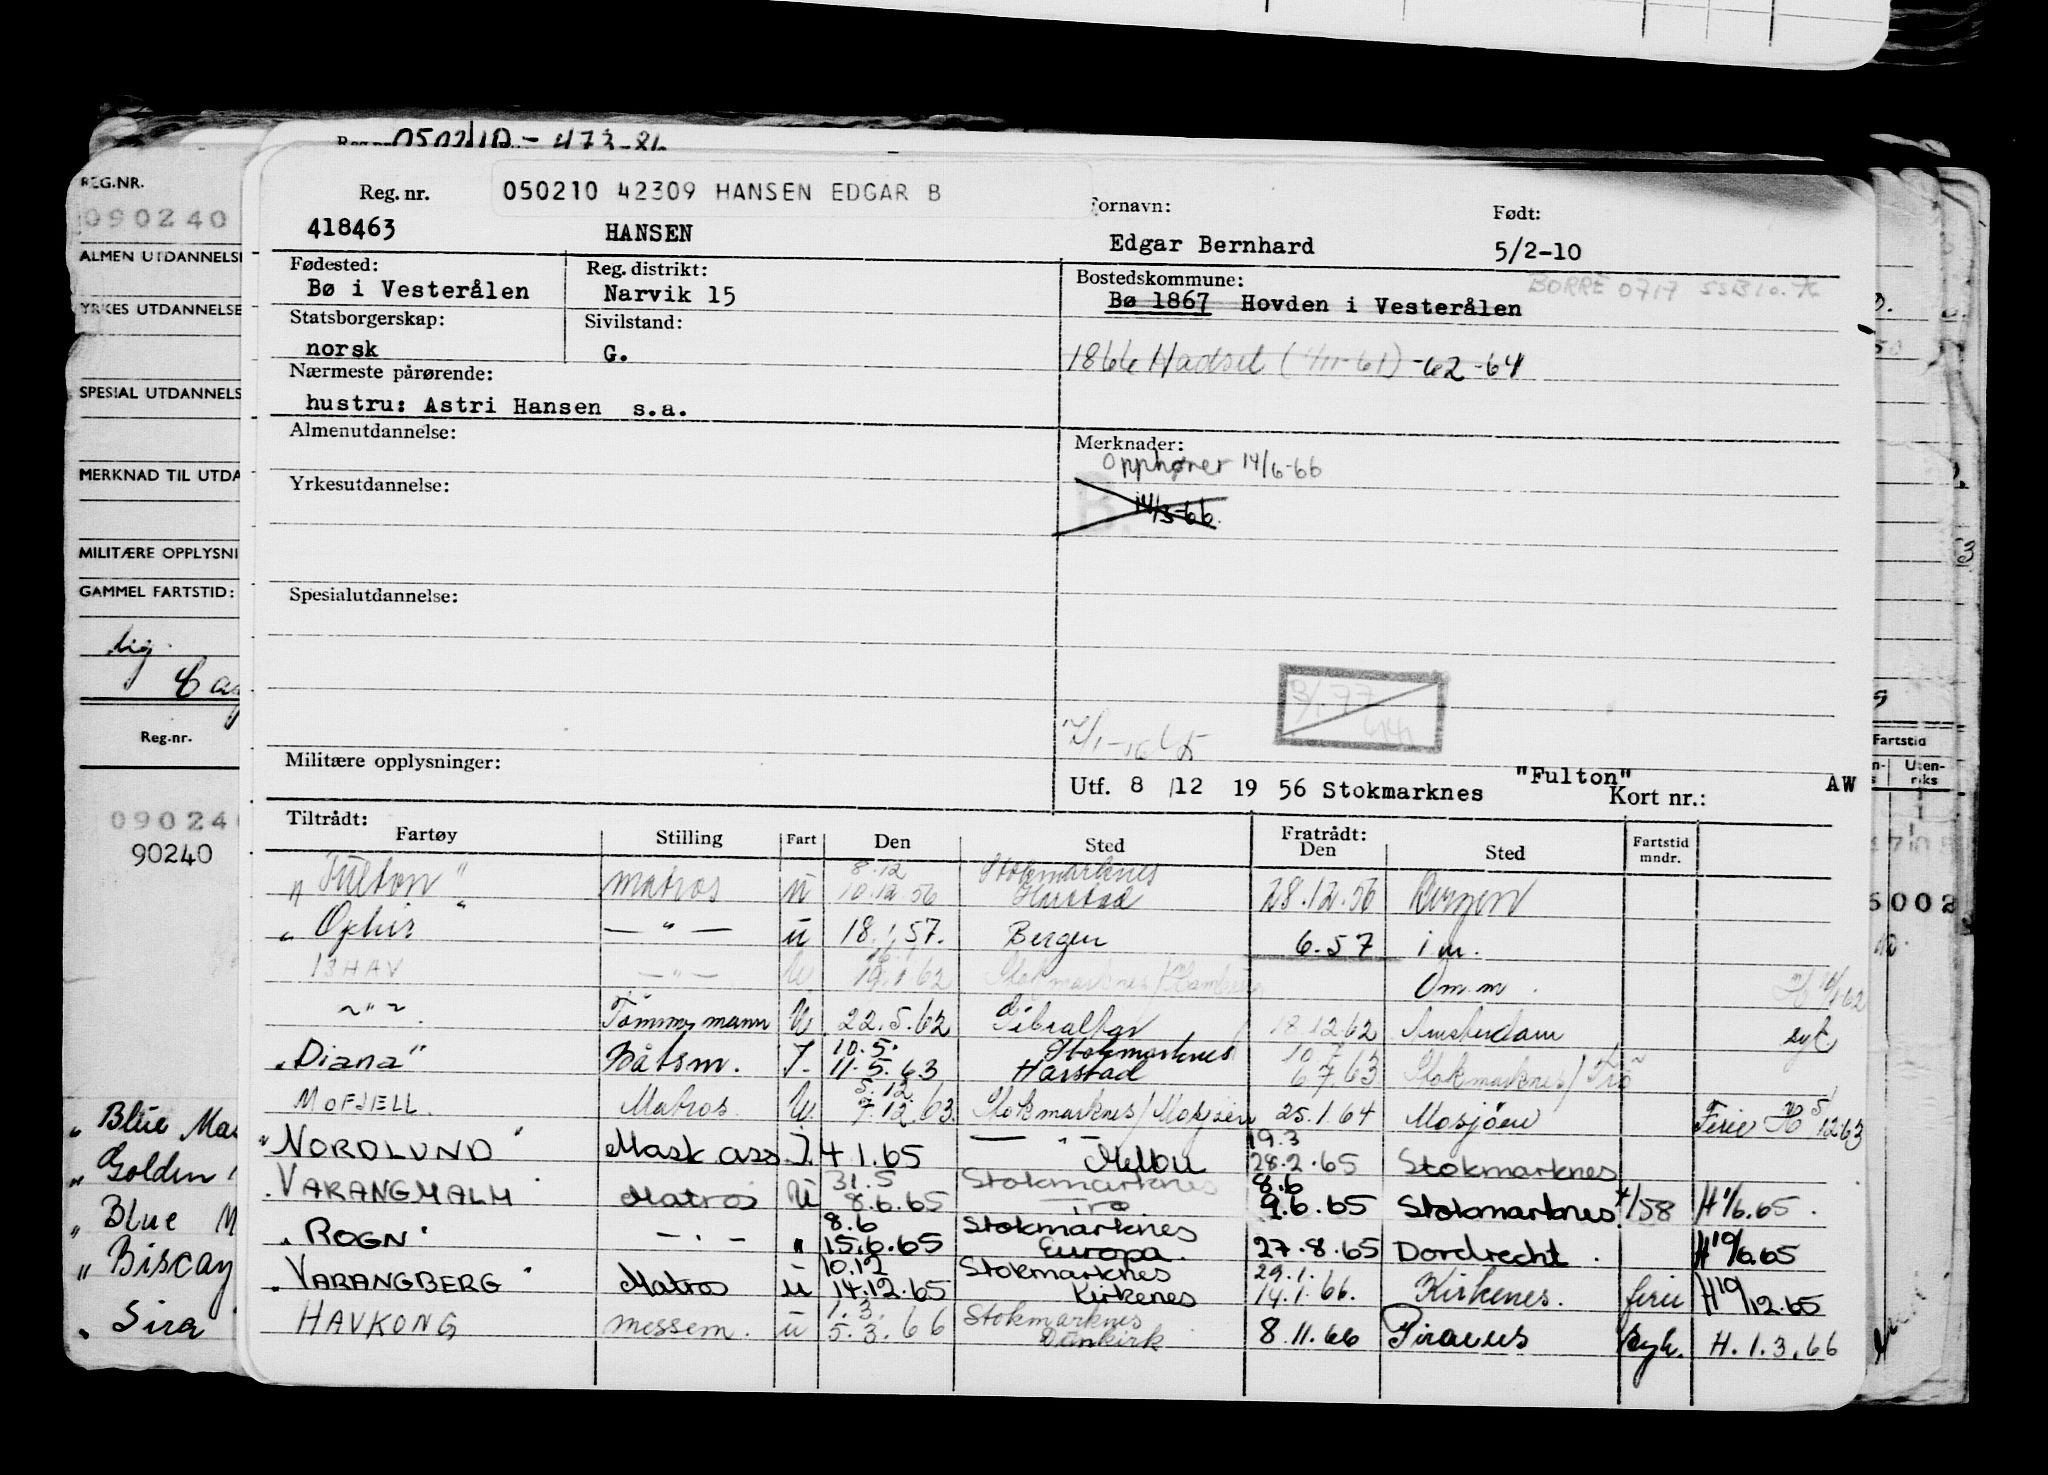 050210 - 473-86
REG.NR.
090240
ALMEN UTDANNELSE
YRKES UTDANNELSE
SPESIAL UTDANNELS
MERKNAD TIL UTDA
MILITÆRE OPPLYSNI
GAMMEL FARTSTID:
Reg.nr.
090240
90240
Blue Ma
Golden
Blue M
Biscay
Sira
Reg. nr. 050210 42309 HANSEN EDGAR B Fornavn: Født:
418463 HANSEN Edgar Bernhard 5/2-10
Fødested: Reg. distrikt: Bostedskommune: BORRE 0717
Bø i Vesterålen Narvik 15 Bø 1867 Hovden i Vesterålen
Statsborgerskap: Sivilstand:
norsk G. 1866 Hadsel (1/11-61) -62 -64
Nærmeste pårørende:
hustru: Astri Hansen s.a.
Almenutdannelse: Merknader:
Opphører 14/6-66
Yrkesutdannelse: B. 14/3-66.
Spesialutdannelse:
Militære opplysninger: Utf. 8 /12 19 56 Stokmarknes "Fulton" Kort nr.: AW
Tiltrådt: Fratrådt:
Fartøy Stilling Fart Den Sted Den Sted Fartstid mndr.
"Fulton" matros u 8.12 10.12.56 Stokmarknes Harstad 28.12.56 Bergen
"Ophir" — " — u 18.1.57. Bergen 6.57 i m.
ISHAV — " — U 16.1 19.1.62 Stokmarknes/Hamburg Om.m. H 16/1 62
~ " ~ Tømmermann U 22.5.62 Gibraltar 18.12.62 Amsterdam syk
"Diana" Båtsm. I. 10.5. 11.5.63 Stokmarknes Harstad 10.7 6.7.63 Stokmarknes/Trö
MOFJELL. Matros U. 5.12. 7.12.63. Stokmarknes/Mosjøen 25.1.64 Mosjøen Ferie H 5/12 63
"NORDLUND" Mask ass I. 4.1.65 — " — Melbu 19.3 28.2.65 Stokmarknes
"VARANGMALM" Matros U 31.5 8.6.65 Stokmarknes Tro 8.6 9.6.65 Stokmarknes 4/58 H 1/6.65.
"ROGN" — " — " 8.6 15.6.65 Stokmarknes Europa. 27.8.65 Dordrecht. H 10/6 65
"VARANGBERG" Matros u 10.12 14.12.65 Stokmarknes Kirkenes 29.1. 14.1.66. Kirkenes. ferie H 10/12.65
HAVKONG messem. u 1.3. 5.3.66 Stokmarknes Dunkirk 8.11.66 Piraeus Syk. H. 1.3.66
Fartstid
Uten-
riks